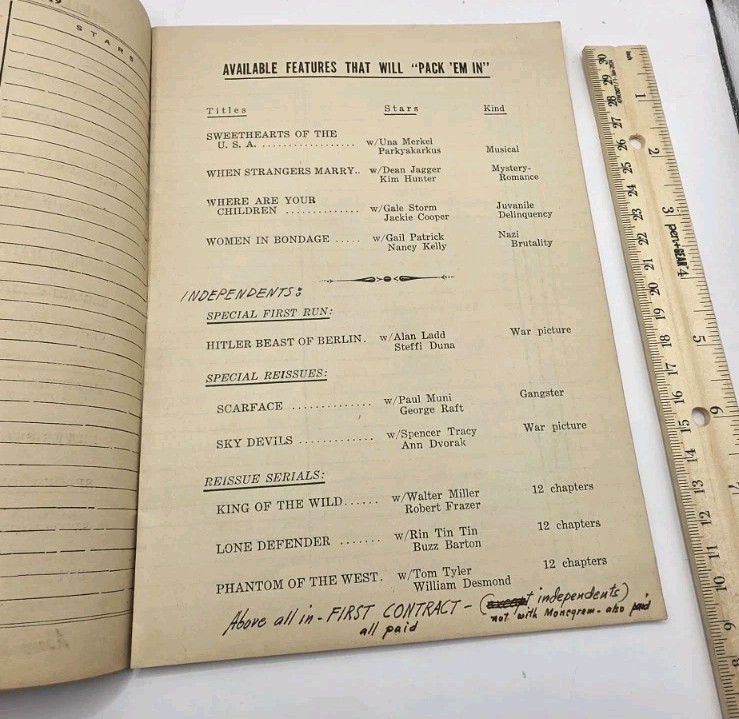 STARS
AVAILABLE FEATURES THAT WILL "PACK 'EM IN"
Titles Stars Kind
SWEETHEARTS OF THE
U. S. A. .................. w/Una Merkel
Parkyakarkus Musical
WHEN STRANGERS MARRY.. w/Dean Jagger Mystery-
Kim Hunter Romance
WHERE ARE YOUR
CHILDREN .............. w/Gale Storm Juvanile
Jackie Cooper Delinquency
WOMEN IN BONDAGE ..... w/Gail Patrick Nazi
Nancy Kelly Brutality
INDEPENDENTS:
SPECIAL FIRST RUN:
HITLER BEAST OF BERLIN. w/Alan Ladd War picture
Steffi Duna
SPECIAL REISSUES:
SCARFACE ............. w/Paul Muni Gangster
George Raft
SKY DEVILS ............ w/Spencer Tracy War picture
Ann Dvorak
REISSUE SERIALS:
KING OF THE WILD...... w/Walter Miller 12 chapters
Robert Frazer
LONE DEFENDER ....... w/Rin Tin Tin 12 chapters
Buzz Barton
PHANTOM OF THE WEST. w/Tom Tyler 12 chapters
William Desmond
Above all in - FIRST CONTRACT - (except independents)
all paid not with Monogram - also paid
1
2
3 pen+GEAR 4
5
6
7
8
9
30
29
28
27
26
25
24
23
22
21
20
19
18
17
16
15
14
13
12
11
10
9
8